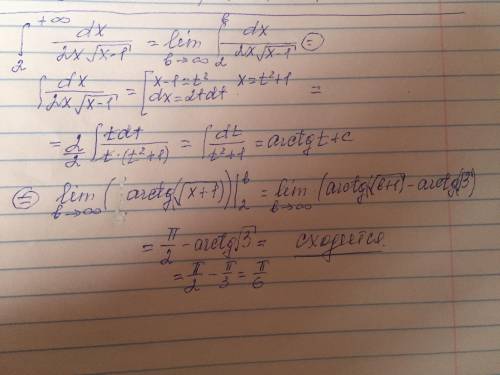 ∫₂^{+∞} dx/(2x√(x-1)) = lim_{b→∞} ∫₂^b dx/(2x√(x-1)) =
∫ dx/(2x√(x-1)) = [x-1=t² x=t²+1 dx=2tdt =
= 2/2 ∫ tdt/(t·(t²+1)) = ∫ dt/(t²+1) = arctg t + c
= lim_{b→∞} (arctg(√(x+1))|₂^b = lim_{b→∞} (arctg√(b+1) - arctg√3)
= π/2 - arctg√3 = сходится.
= π/2 - π/3 = π/6